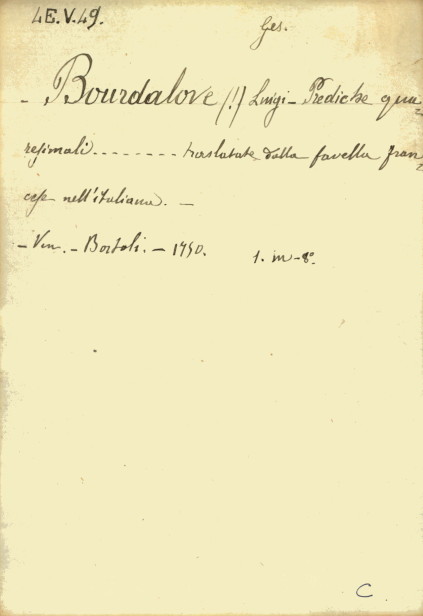 4E.V.49.
Ges.
- Bourdalove (!) Luigi - Prediche qua=
resimali........ traslatate dalla favella fran=
cese nell'italiana. -
- Ven. - Bortoli. - 1750. 1. in-8°.
C